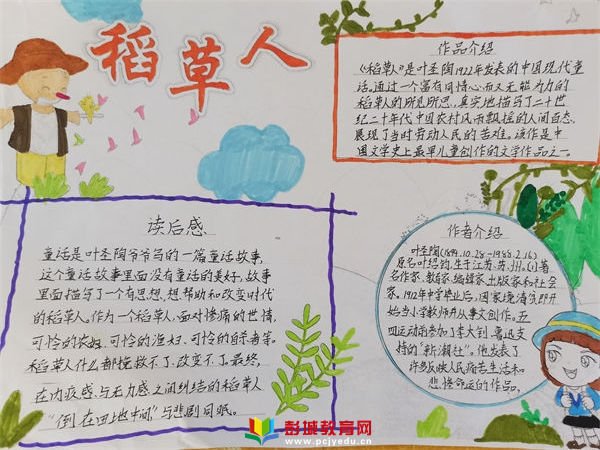 稻草人
作品介绍
《稻草人》是叶圣陶1922年发表的中国现代童
话,通过一个富有同情心而又无能为力的
稻草人的所见所思,真实地描写了二十世
纪二十年代中国农村风雨飘摇的人间百态,
展现了当时劳动人民的苦难。该作是中
国文学史上最早儿童创作的文学作品之一。
读后感
童话是叶圣陶爷爷写的一篇童话故事,
这个童话故事里面没有童话的美好,故事
里面描写了一个有思想、想帮助和改变时代
的稻草人。作为一个稻草人,面对惨痛的世情,
可怜的农妇、可怜的渔妇、可怜的自杀者等。
稻草人什么都挽救不了、改变不了最终,
在内疚感、与无力感之间纠结的稻草人
“倒在田地中间”与悲剧同眠。
作者介绍
叶圣陶(1894.10.28-1988.2.16)
原名叶绍钧,生于江苏、苏州。(1)著
名作家、教育家、编辑家、出版家和社会
家。1912年中学毕业后,因家境清贫即开
始当小学教师并从事文创作。五
四运动前参加了李大钊、鲁迅支
持的“新潮社”。他发表了
许多反映人民痛苦生活和
悲惨命运的作品。
彭城教育网
www.pcjyedu.cn